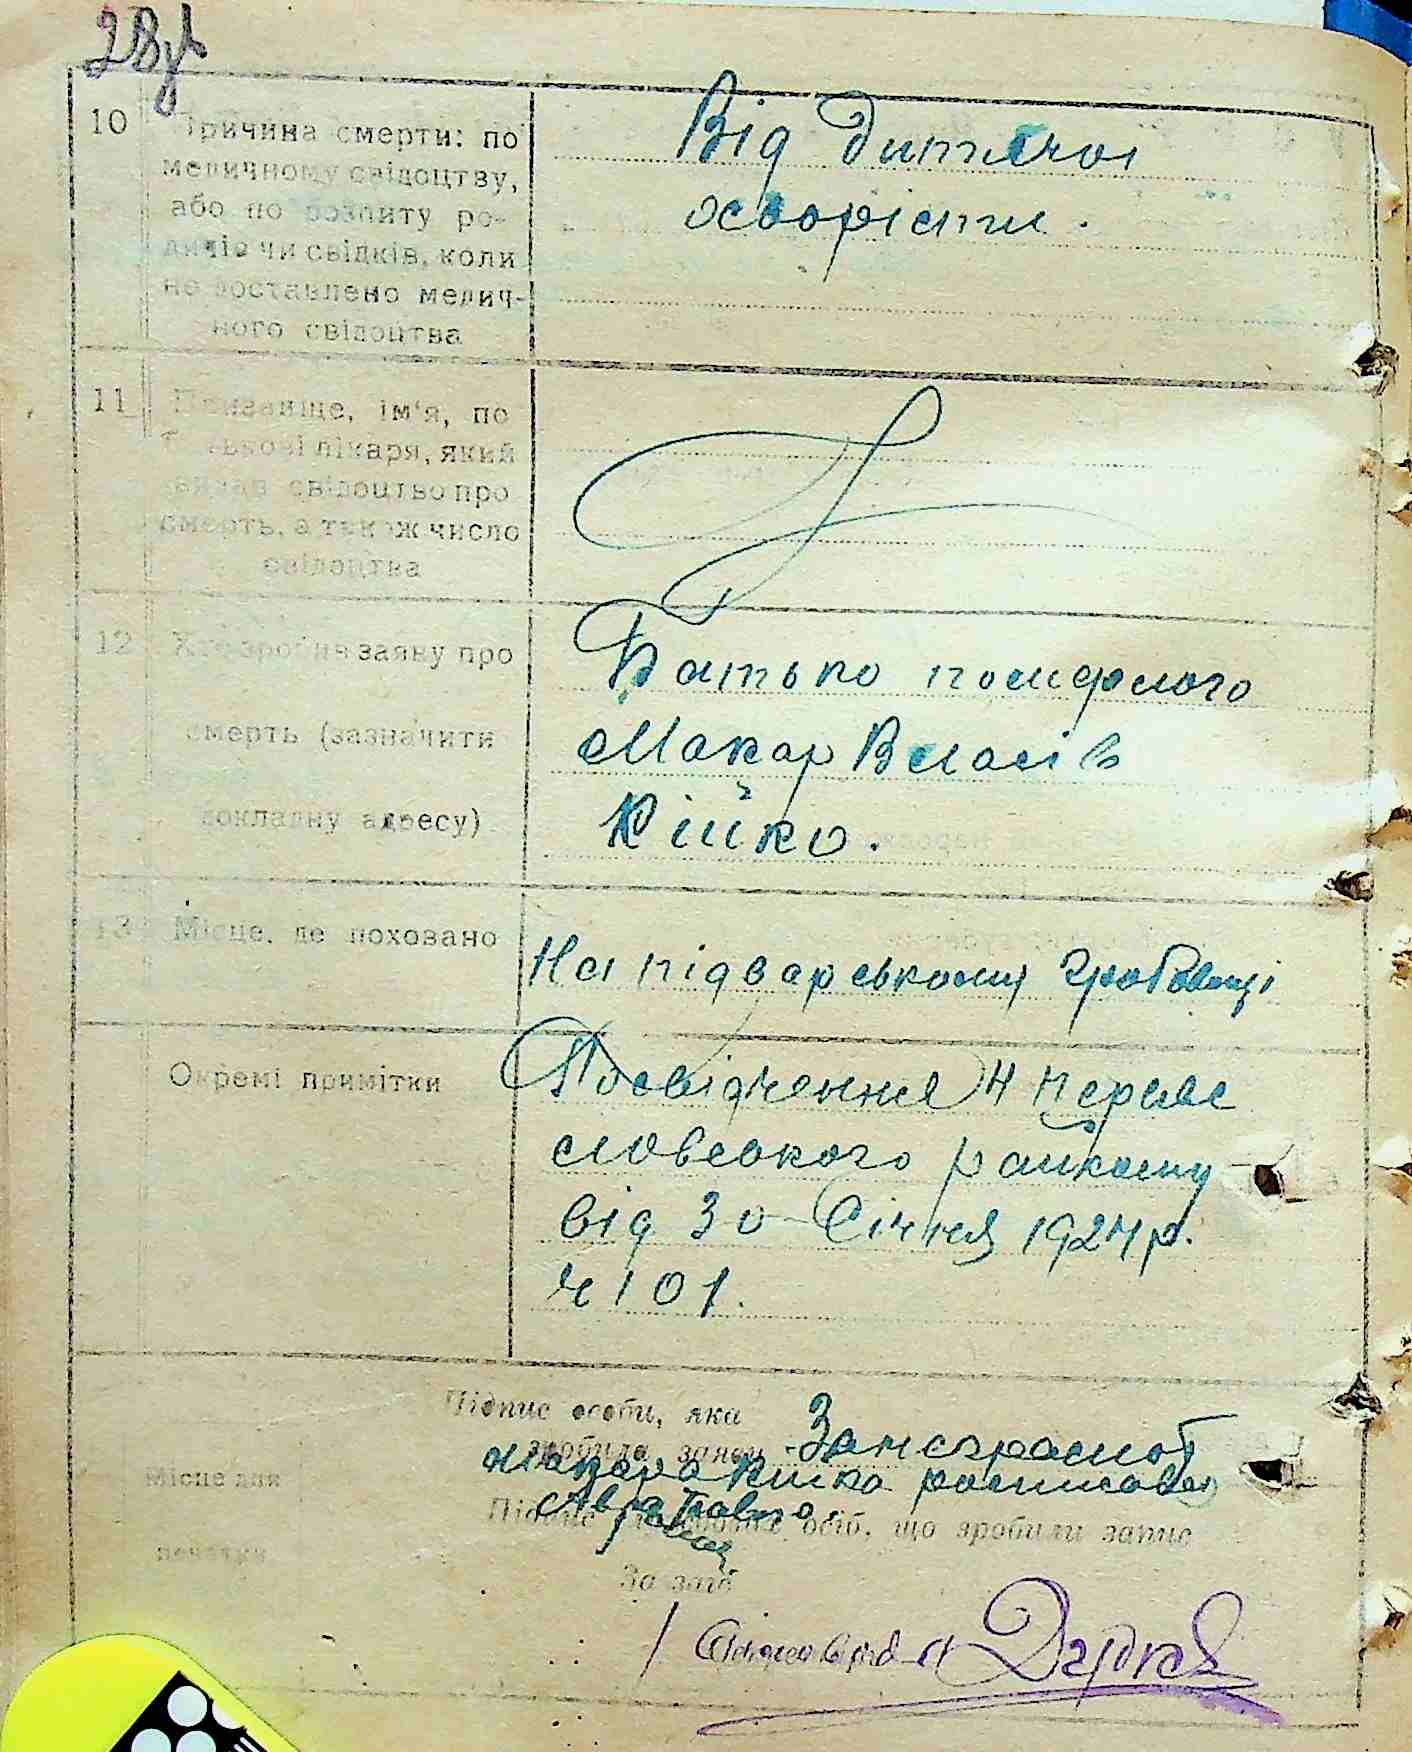 28
10
Причина смерти: по
медичному свідоцтву,
або по розпиту ро-
дичів чи свідків, коли
не доставлено медич-
ного свідоцтва
Від дитячої
хворісти.
11
Призвище, ім'я, по
батькові лікаря, який
видав свідоцтво про
смерть, а також число
свідоцтва
12
Хто зробив заяву про
смерть (зазначити
докладну адресу)
Батько помершого
Макар Власів
Кійко.
13
Місце, де поховано
На підварському гробовищі
Окремі примітки
Посвідчення Н Переяс
ловського райкому
від 30 Січня 1924 р.
ч 101.
Підпис особи, яка
зробила заяву
За неграмот
Макара Кійка росписався
Місце для
печатки
Підпис осіб, що зробили запис
За заг
Діловод